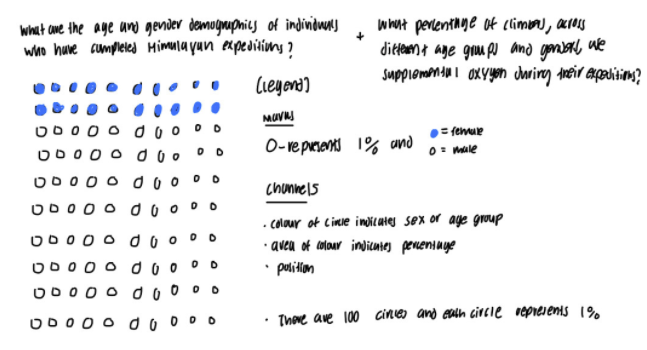 What are the age and gender demographics of individuals
who have completed Himalayan expeditions?
+
What percentage of climbers, across
different age groups and genders, use
supplemental oxygen during their expeditions?
(Legend)
Marks
O-represents 1% and
= female
= male
Channels
· colour of circle indicates sex or age group
· area of colour indicates percentage
· position
· There are 100 circles and each circle represents 1%